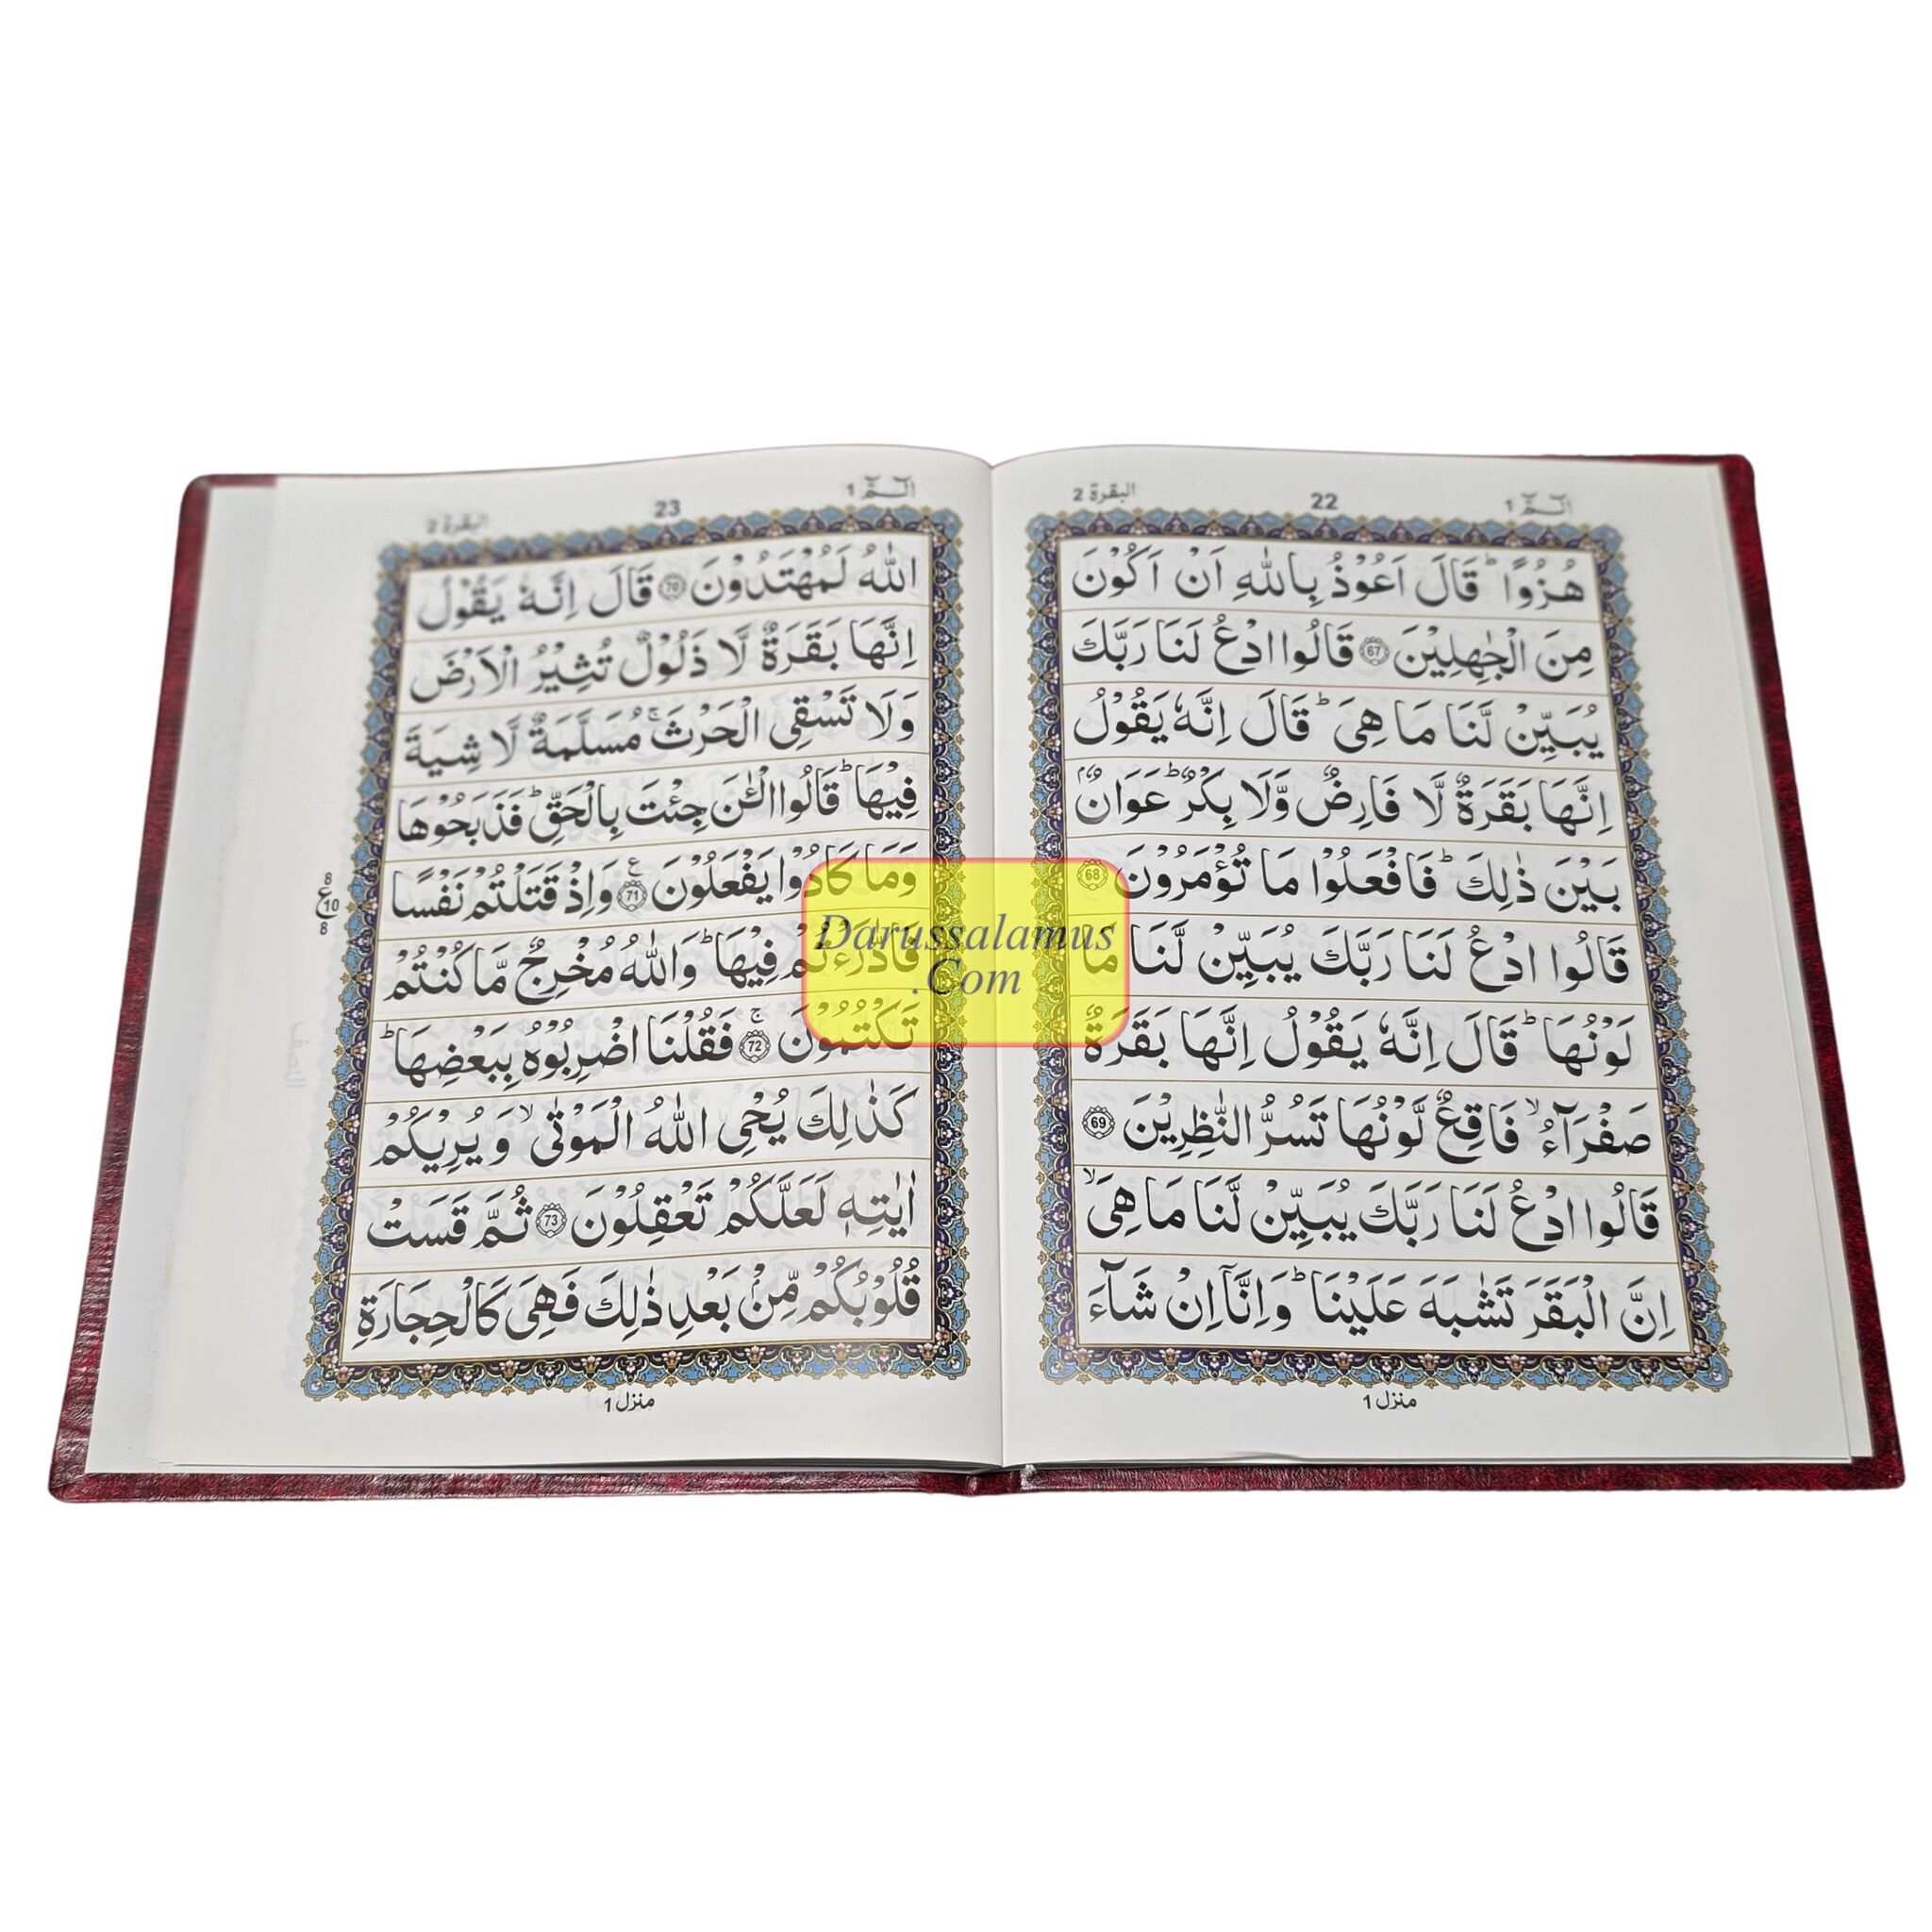 البقرة 2
22
الٓمّٓ 1
هُزُوًا ؕ قَالَ اَعُوْذُ بِاللّٰهِ اَنْ اَكُوْنَ
مِنَ الْجٰهِلِيْنَ 67 قَالُوا ادْعُ لَنَا رَبَّكَ
يُبَيِّنْ لَّنَا مَا هِىَ ؕ قَالَ اِنَّهٗ يَقُوْلُ
اِنَّهَا بَقَرَةٌ لَّا فَارِضٌ وَّلَا بِكْرٌ ؕ عَوَانٌۢ
بَيْنَ ذٰلِكَ ؕ فَافْعَلُوْا مَا تُؤْمَرُوْنَ 68
قَالُوا ادْعُ لَنَا رَبَّكَ يُبَيِّنْ لَّنَا مَا
لَوْنُهَا ؕ قَالَ اِنَّهٗ يَقُوْلُ اِنَّهَا بَقَرَةٌ
صَفْرَآءُ ۙ فَاقِعٌ لَّوْنُهَا تَسُرُّ النّٰظِرِيْنَ 69
قَالُوا ادْعُ لَنَا رَبَّكَ يُبَيِّنْ لَّنَا مَا هِىَ ۙ
اِنَّ الْبَقَرَ تَشٰبَهَ عَلَيْنَا ؕ وَاِنَّآ اِنْ شَآءَ
منزل 1
البقرة 2
23
الٓمّٓ 1
اللّٰهُ لَمُهْتَدُوْنَ 70 قَالَ اِنَّهٗ يَقُوْلُ
اِنَّهَا بَقَرَةٌ لَّا ذَلُوْلٌ تُثِيْرُ الْاَرْضَ
وَلَا تَسْقِى الْحَرْثَ ۚ مُسَلَّمَةٌ لَّا شِيَةَ
فِيْهَا ؕ قَالُوا الْـٰٔنَ جِئْتَ بِالْحَقِّ ؕ فَذَبَحُوْهَا
وَمَا كَادُوْا يَفْعَلُوْنَ 71 وَاِذْ قَتَلْتُمْ نَفْسًا
8 ع 10 8
فَادّٰرَءْتُمْ فِيْهَا ؕ وَاللّٰهُ مُخْرِجٌ مَّا كُنْتُمْ
تَكْتُمُوْنَ ۚ 72 فَقُلْنَا اضْرِبُوْهُ بِبَعْضِهَا ؕ
كَذٰلِكَ يُحْىِ اللّٰهُ الْمَوْتٰى ۙ وَيُرِيْكُمْ
اٰيٰتِهٖ لَعَلَّكُمْ تَعْقِلُوْنَ 73 ثُمَّ قَسَتْ
قُلُوْبُكُمْ مِّنْۢ بَعْدِ ذٰلِكَ فَهِىَ كَالْحِجَارَةِ
منزل 1
Darussalamus
.Com